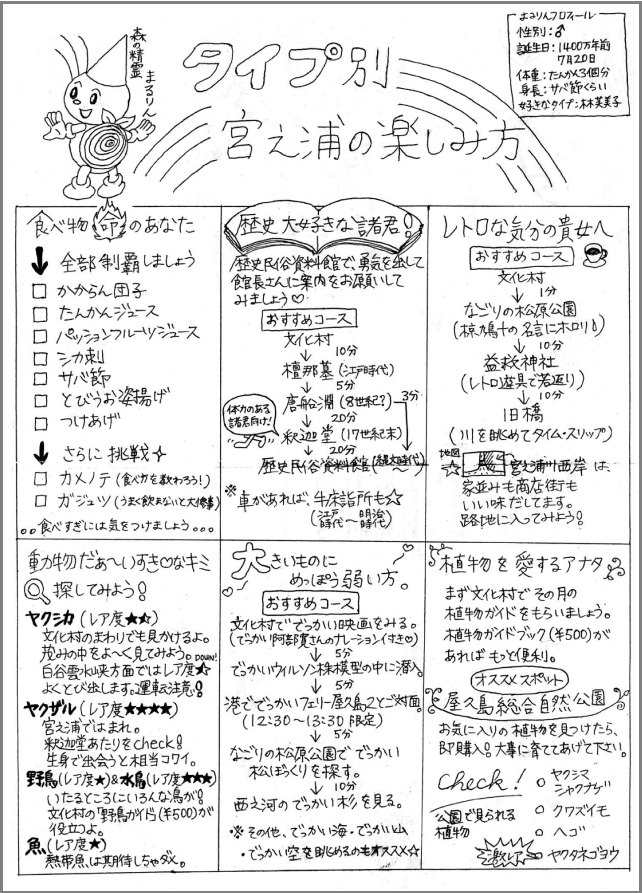 森の精霊
まるりん
タイプ別
宮之浦の楽しみ方
まるりんプロフィール
性別:♂
誕生日:1400万年前
7月20日
体重:たんかん3個分
身長:サバ節くらい
好きなタイプ:林芙美子
食べ物命のあなた
↓全部制覇しましょう
□ かからん団子
□ たんかんジュース
□ パッションフルーツジュース
□ シカ刺
□ サバ節
□ とびうお姿揚げ
□ つけあげ
↓さらに挑戦☆
□ カメノテ(食べ方を教わろう!)
□ ガジュツ(うまく飲まないと大惨事)
..食べすぎには気をつけましょう...
歴史大好きな諸君!
歴史民俗資料館で、勇気を出して
館長さんに案内をお願いして
みましょう♡
おすすめコース
文化村
↓10分
檀那墓(江戸時代)
↓5分
唐船淵(8世紀?)
3分
体力のある
諸君向け!
↓20分
釈迦堂(17世紀末)
↓20分
歴史民俗資料館
※車があれば、牛床詣所も☆
(江戸時代~明治時代)
レトロな気分の貴女へ
おすすめコース
文化村
↓1分
なごりの松原公園
(椋鳩十の名言にホロリ)
↓10分
益救神社
(レトロ遊具で若返り)
↓10分
旧橋
(川を眺めてタイム・スリップ)
地図
☆
宮之浦川西岸は、
家並みも商店街も
いい味だしてます。
路地に入ってみよう!
動物だぁ~いすき♡なキミ
探してみよう!
ヤクシカ(レア度★★)
文化村のまわりでも見かけるよ。
茂みの中をよーく見てみよう。
DOWN!
白谷雲水峡方面ではレア度★
よくとび出します。運転注意!
ヤクザル(レア度★★★★)
宮之浦ではまれ。
釈迦堂あたりをcheck!
生身で出会うと相当コワイ。
野鳥(レア度★)&水鳥(レア度★★★)
いたるところにいろんな鳥が!
文化村の「野鳥ガイド」(¥500)が
役立つよ。
魚(レア度★)
熱帯魚は期待しちゃダメ。
大きいものに
めっぽう弱い方。
おすすめコース
文化村ででっかい映画をみる。
(でっかい阿部寛さんのナレーション付き♡)
↓5分
でっかいウィルソン株模型の中に潜入。
↓5分
港ででっかいフェリー屋久島2とご対面。
(12:30~13:30限定)
↓5分
なごりの松原公園ででっかい
松ぼっくりを探す。
↓10分
西之河のでっかい杉を見る。
※その他、でっかい海・でっかい山
・でっかい空を眺めるのもオススメ☆
植物を愛するアナタ
まず文化村でその月の
植物ガイドをもらいましょう。
植物ガイドブック(¥500)が
あればもっと便利。
オススメスポット
屋久島総合自然公園
お気に入りの植物を見つけたら、
即購入!大事に育ててあげて下さい。
check!
公園で見られる
植物
○ ヤクシマシャクナゲ
○ クワズイモ
○ ヘゴ
激レア
○ ヤクタネゴヨウ